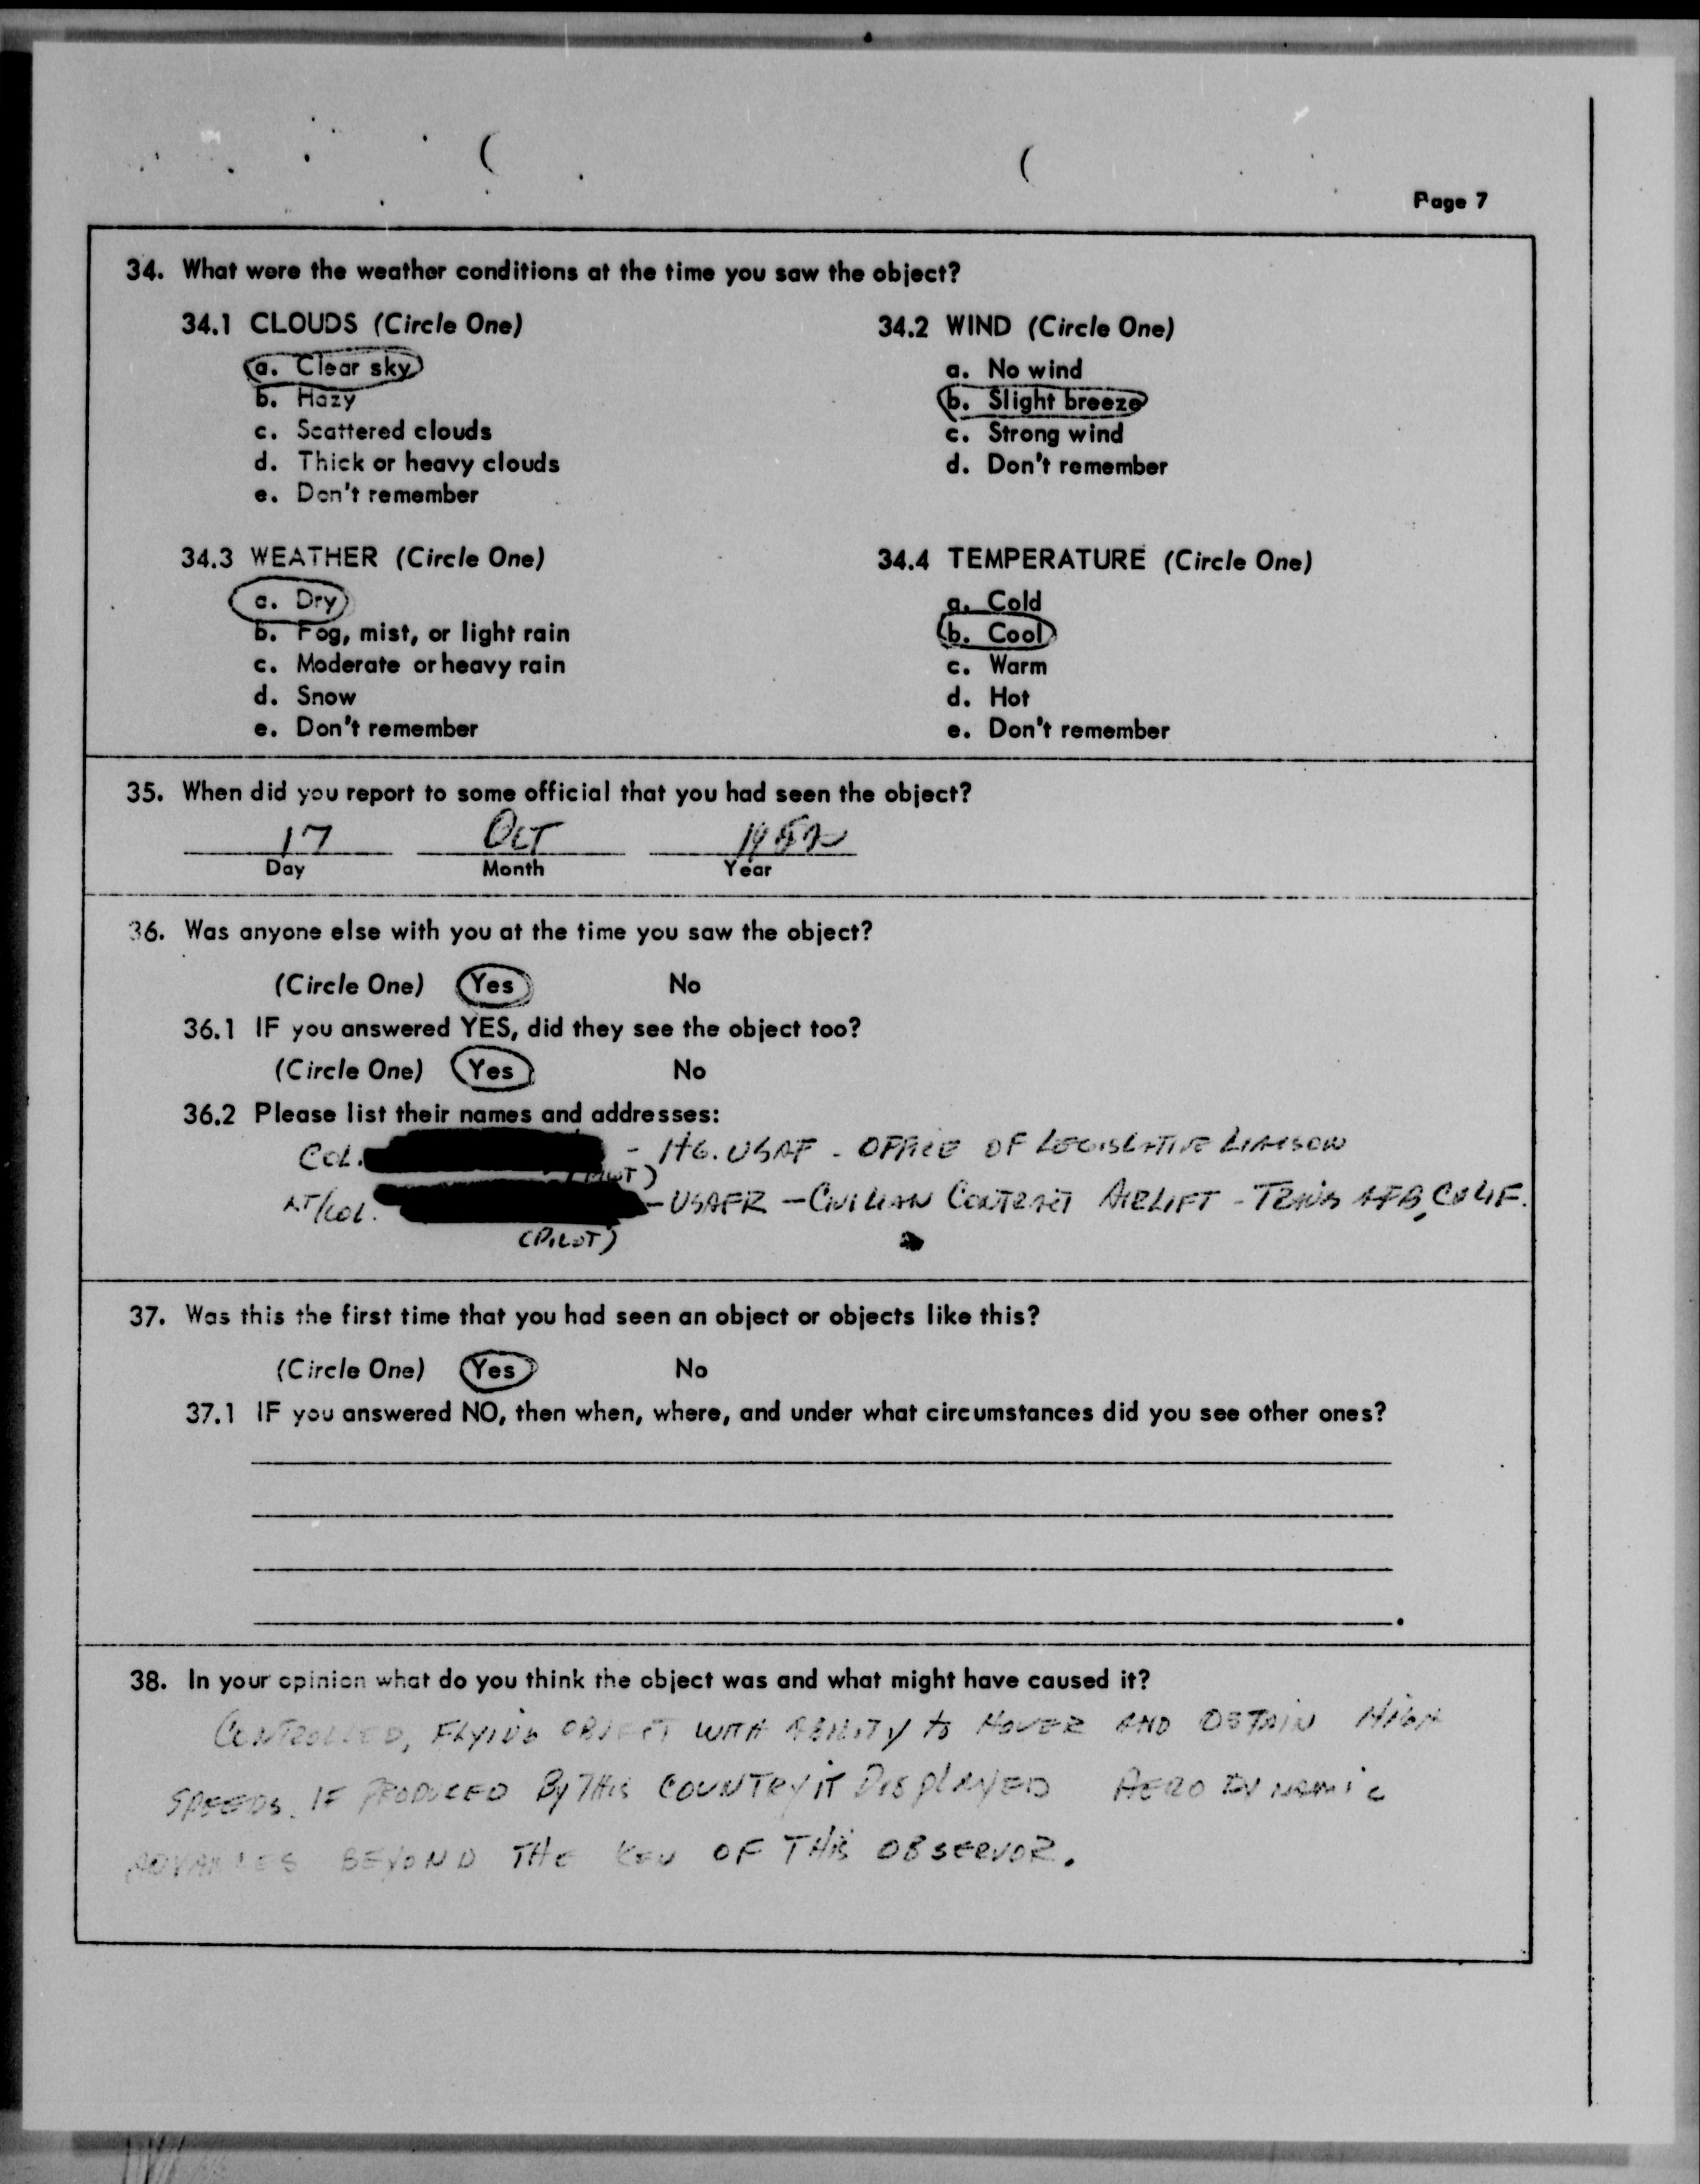 Page 7
34. What were the weather conditions at the time you saw the object?
34.1 CLOUDS (Circle One)
a. Clear sky
b. Hazy
c. Scattered clouds
d. Thick or heavy clouds
e. Don't remember
34.2 WIND (Circle One)
a. No wind
b. Slight breeze
c. Strong wind
d. Don't remember
34.3 WEATHER (Circle One)
a. Dry
b. Fog, mist, or light rain
c. Moderate or heavy rain
d. Snow
e. Don't remember
34.4 TEMPERATURE (Circle One)
a. Cold
b. Cool
c. Warm
d. Hot
e. Don't remember
35. When did you report to some official that you had seen the object?
17 OCT
Day Month Year
36. Was anyone else with you at the time you saw the object?
(Circle One) Yes No
36.1 IF you answered YES, did they see the object too?
(Circle One) Yes No
36.2 Please list their names and addresses:
COL. - HQ. USAF - OFFICE OF LEGISLATIVE LIAISON
LT/COL. - USAFR - CIVILIAN CONTRACT AIRLIFT - TRAVIS AFB, CALIF.
(PILOT)
37. Was this the first time that you had seen an object or objects like this?
(Circle One) Yes No
37.1 IF you answered NO, then when, where, and under what circumstances did you see other ones?
38. In your opinion what do you think the object was and what might have caused it?
CONTROLLED, FLYING OBJECT WITH ABILITY to HOVER AND OBTAIN HIGH
SPEEDS. IF PRODUCED By THIS COUNTRY IT DISPlAYED AERO DYNAMIC
ADVANCES BEYOND THE KEN OF THIS OBSERVOR.